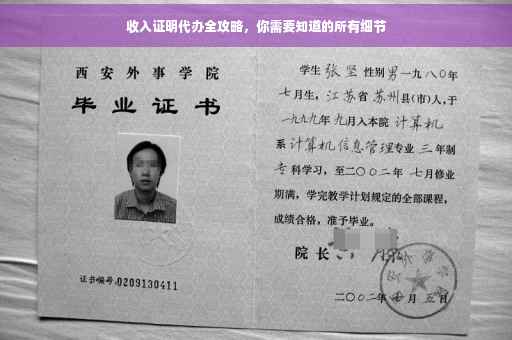 收入证明代办全攻略，你需要知道的所有细节
西安外事学院
毕业证书
证书编号:0209130411
学生 张坚 性别 男 一九八〇年
七月生，江苏省 苏州县(市)人，于
一九九九年 九月入本院 计算机
系 计算机信息管理专业 三 年制
专 科学习，至二〇〇二年 七月修业
期满，学完教学计划规定的全部课程，
成绩合格，准予毕业。
院长
二〇〇二年 月 五日